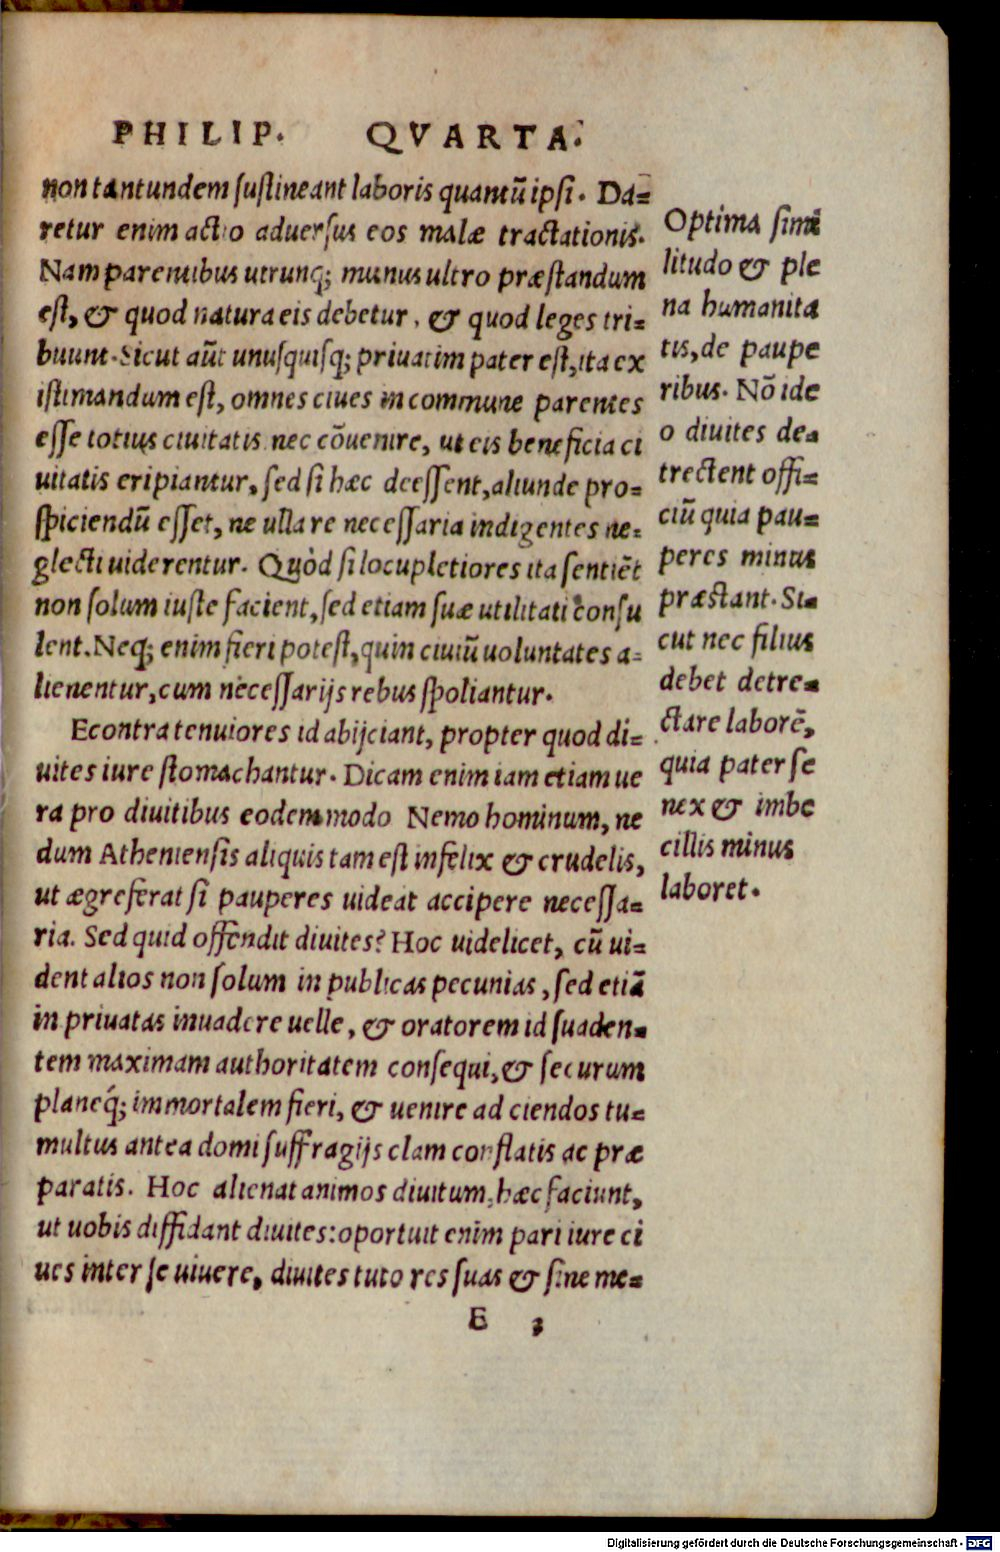 PHILIP. QVARTA.
non tantundem ſuſtineant laboris quantū ipſi. Da=
retur enim actio aduerſus eos malæ tractationis.
Nam parentibus utrunq; munus ultro præſtandum
eſt, & quod natura eis debetur, & quod leges tri=
buunt. Sicut aūt unuſquiſq; priuatim pater eſt, ita ex
iſtimandum eſt, omnes ciues in commune parentes
eſſe totius ciuitatis nec cōuenire, ut eis beneficia ci
uitatis eripiantur, ſed ſi hæc deeſſent, aliunde pro=
ſpiciendū eſſet, ne ulla re neceſſaria indigentes ne=
glecti uiderentur. Quòd ſi locupletiores ita ſentiēt
non ſolum iuſte facient, ſed etiam ſuæ utilitati conſu
lent. Neq; enim fieri poteſt, quin ciuiū uoluntates a=
lienentur, cum neceſſarijs rebus ſpoliantur.
Econtra tenuiores id abijciant, propter quod di=
uites iure ſtomachantur. Dicam enim iam etiam ue
ra pro diuitibus eodem modo Nemo hominum, ne
dum Athenienſis aliquis tam eſt infelix & crudelis,
ut ægre ferat ſi pauperes uideat accipere neceſſa=
ria. Sed quid offendit diuites? Hoc uidelicet, cū ui=
dent alios non ſolum in publicas pecunias, ſed etiā
in priuatas inuadere uelle, & oratorem id ſuaden=
tem maximam authoritatem conſequi, & ſecurum
planeq́; immortalem fieri, & uenire ad ciendos tu=
multus antea domi ſuffragijs clam conflatis ac præ
paratis. Hoc alienat animos diuitum, hæc faciunt,
ut uobis diffidant diuites: oportuit enim pari iure ci
ues inter ſe uiuere, diuites tuto res ſuas & ſine me=
E 3
Optima ſimi
litudo & ple
na humanita
tis, de paupe
ribus. Nō ide
o diuites de=
trectent offi=
ciū quia pau=
peres minus
præſtant. Si=
cut nec filius
debet detre=
ctare laborē,
quia pater ſe
nex & imbe
cillis minus
laboret.
Digitalisierung gefördert durch die Deutsche Forschungsgemeinschaft - DFG